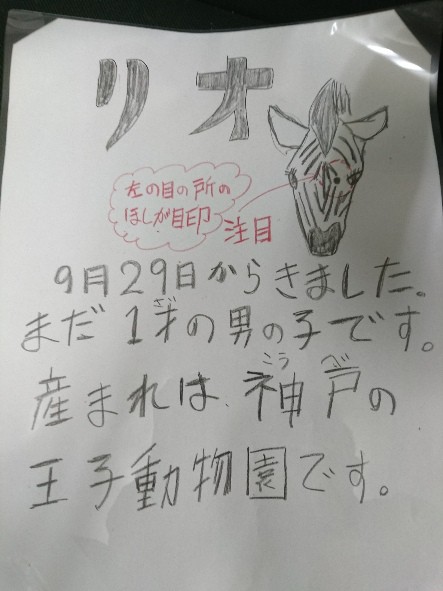 リオ
左の目の所の
ほしが目印
注目
9月29日からきました。
まだ1才の男の子です。
産まれは、神戸の
王子動物園です。